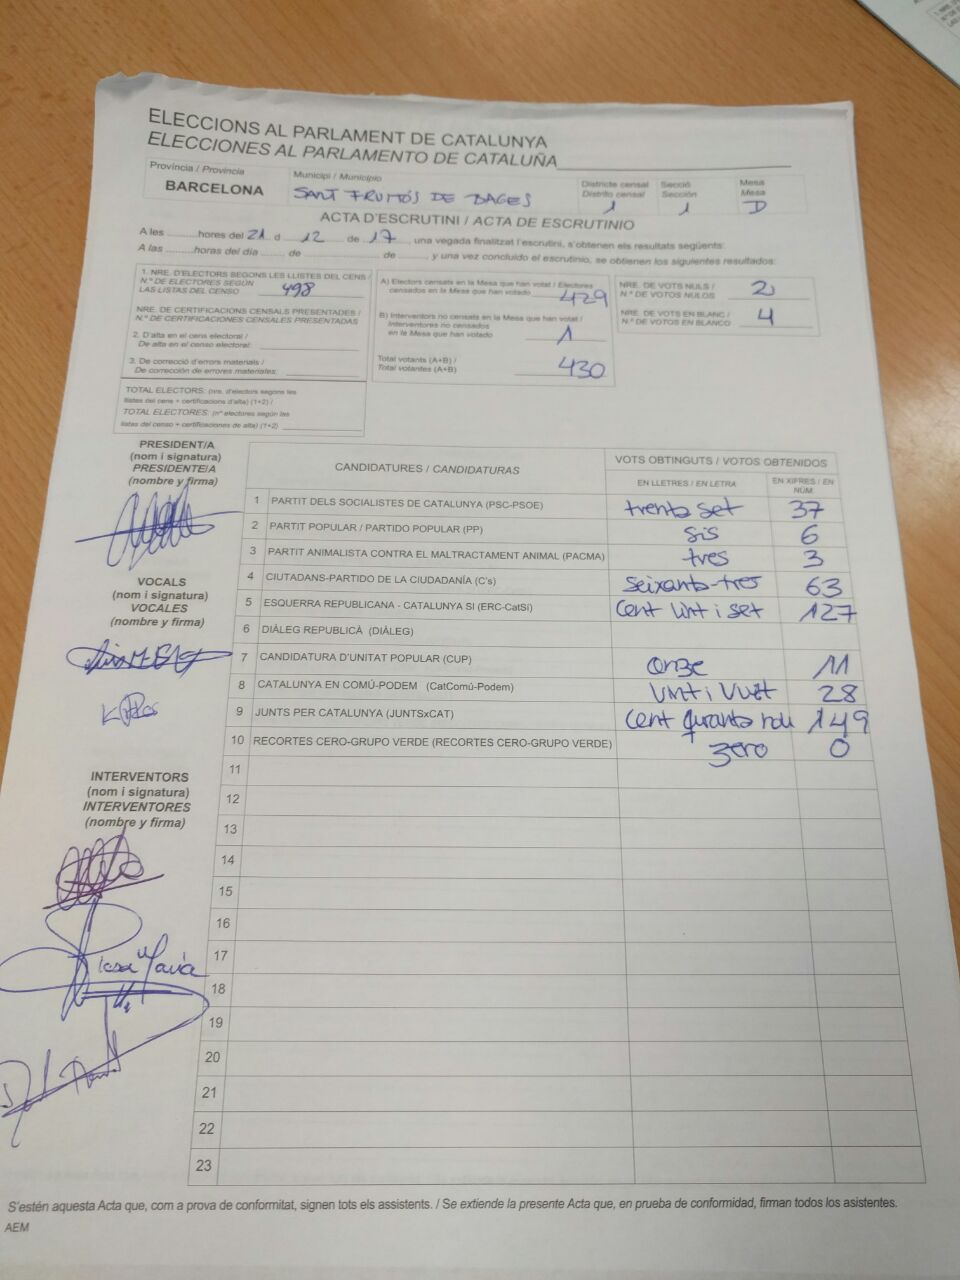 ELECCIONS AL PARLAMENT DE CATALUNYA
ELECCIONES AL PARLAMENTO DE CATALUÑA
Província / Provincia
BARCELONA
Municipi / Municipio
SANT FRUITÓS DE BAGES
Districte censal
Distrito censal
1
Secció
Sección
1
Mesa
Mesa
D
ACTA D'ESCRUTINI / ACTA DE ESCRUTINIO
A les ..........hores del 21 d 12 de 17, una vegada finalitzat l'escrutini, s'obtenen els resultats següents:
A las ..........horas del día ....... de ................ de ......., y una vez concluido el escrutinio, se obtienen los siguientes resultados:
1. NRE. D'ELECTORS SEGONS LES LLISTES DEL CENS /
N.º DE ELECTORES SEGÚN
LAS LISTAS DEL CENSO 498
NRE. DE CERTIFICACIONS CENSALS PRESENTADES /
N.º DE CERTIFICACIONES CENSALES PRESENTADAS
2. D'alta en el cens electoral /
De alta en el censo electoral:
3. De correcció d'errors materials /
De corrección de errores materiales:
TOTAL ELECTORS: (nre. d'electors segons les
llistes del cens + certificacions d'alta) (1+2) /
TOTAL ELECTORES: (nº electores según las
listes del censo + certificaciones de alta) (1+2)
A) Electors censats en la Mesa que han votat / Electores
censados en la Mesa que han votado 429
B) Interventors no censats en la Mesa que han votat /
Interventores no censados
en la Mesa que han votado 1
Total votants (A+B) /
Total votantes (A+B) 430
NRE. DE VOTS NULS /
N.º DE VOTOS NULOS 2
NRE. DE VOTS EN BLANC /
N.º DE VOTOS EN BLANCO 4
PRESIDENT/A
(nom i signatura)
PRESIDENTE/A
(nombre y firma)
VOCALS
(nom i signatura)
VOCALES
(nombre y firma)
INTERVENTORS
(nom i signatura)
INTERVENTORES
(nombre y firma)
CANDIDATURES / CANDIDATURAS
VOTS OBTINGUTS / VOTOS OBTENIDOS
EN LLETRES / EN LETRA
EN XIFRES / EN NÚM.
1 PARTIT DELS SOCIALISTES DE CATALUNYA (PSC-PSOE) trenta set 37
2 PARTIT POPULAR / PARTIDO POPULAR (PP) sis 6
3 PARTIT ANIMALISTA CONTRA EL MALTRACTAMENT ANIMAL (PACMA) tres 3
4 CIUTADANS-PARTIDO DE LA CIUDADANÍA (C's) seixanta-tres 63
5 ESQUERRA REPUBLICANA - CATALUNYA SI (ERC-CatSi) Cent vint i set 127
6 DIÀLEG REPUBLICÀ (DIÀLEG)
7 CANDIDATURA D'UNITAT POPULAR (CUP) onze 11
8 CATALUNYA EN COMÚ-PODEM (CatComú-Podem) vint i vuit 28
9 JUNTS PER CATALUNYA (JUNTSxCAT) Cent quranta nou 149
10 RECORTES CERO-GRUPO VERDE (RECORTES CERO-GRUPO VERDE) zero 0
11
12
13
14
15
16
17
18
19
20
21
22
23
S'estén aquesta Acta que, com a prova de conformitat, signen tots els assistents. / Se extiende la presente Acta que, en prueba de conformidad, firman todos los asistentes.
AEM